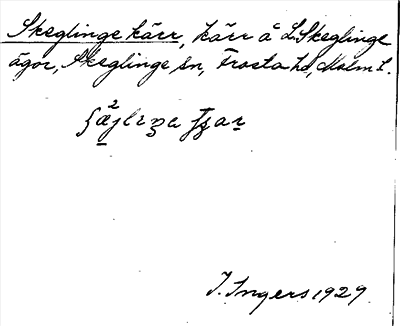 Skeglinge kärr, kärr å L. Skeglinge
ägor, Skeglinge sn, Frosta hd, Malm. l.
I. Ingers 1929